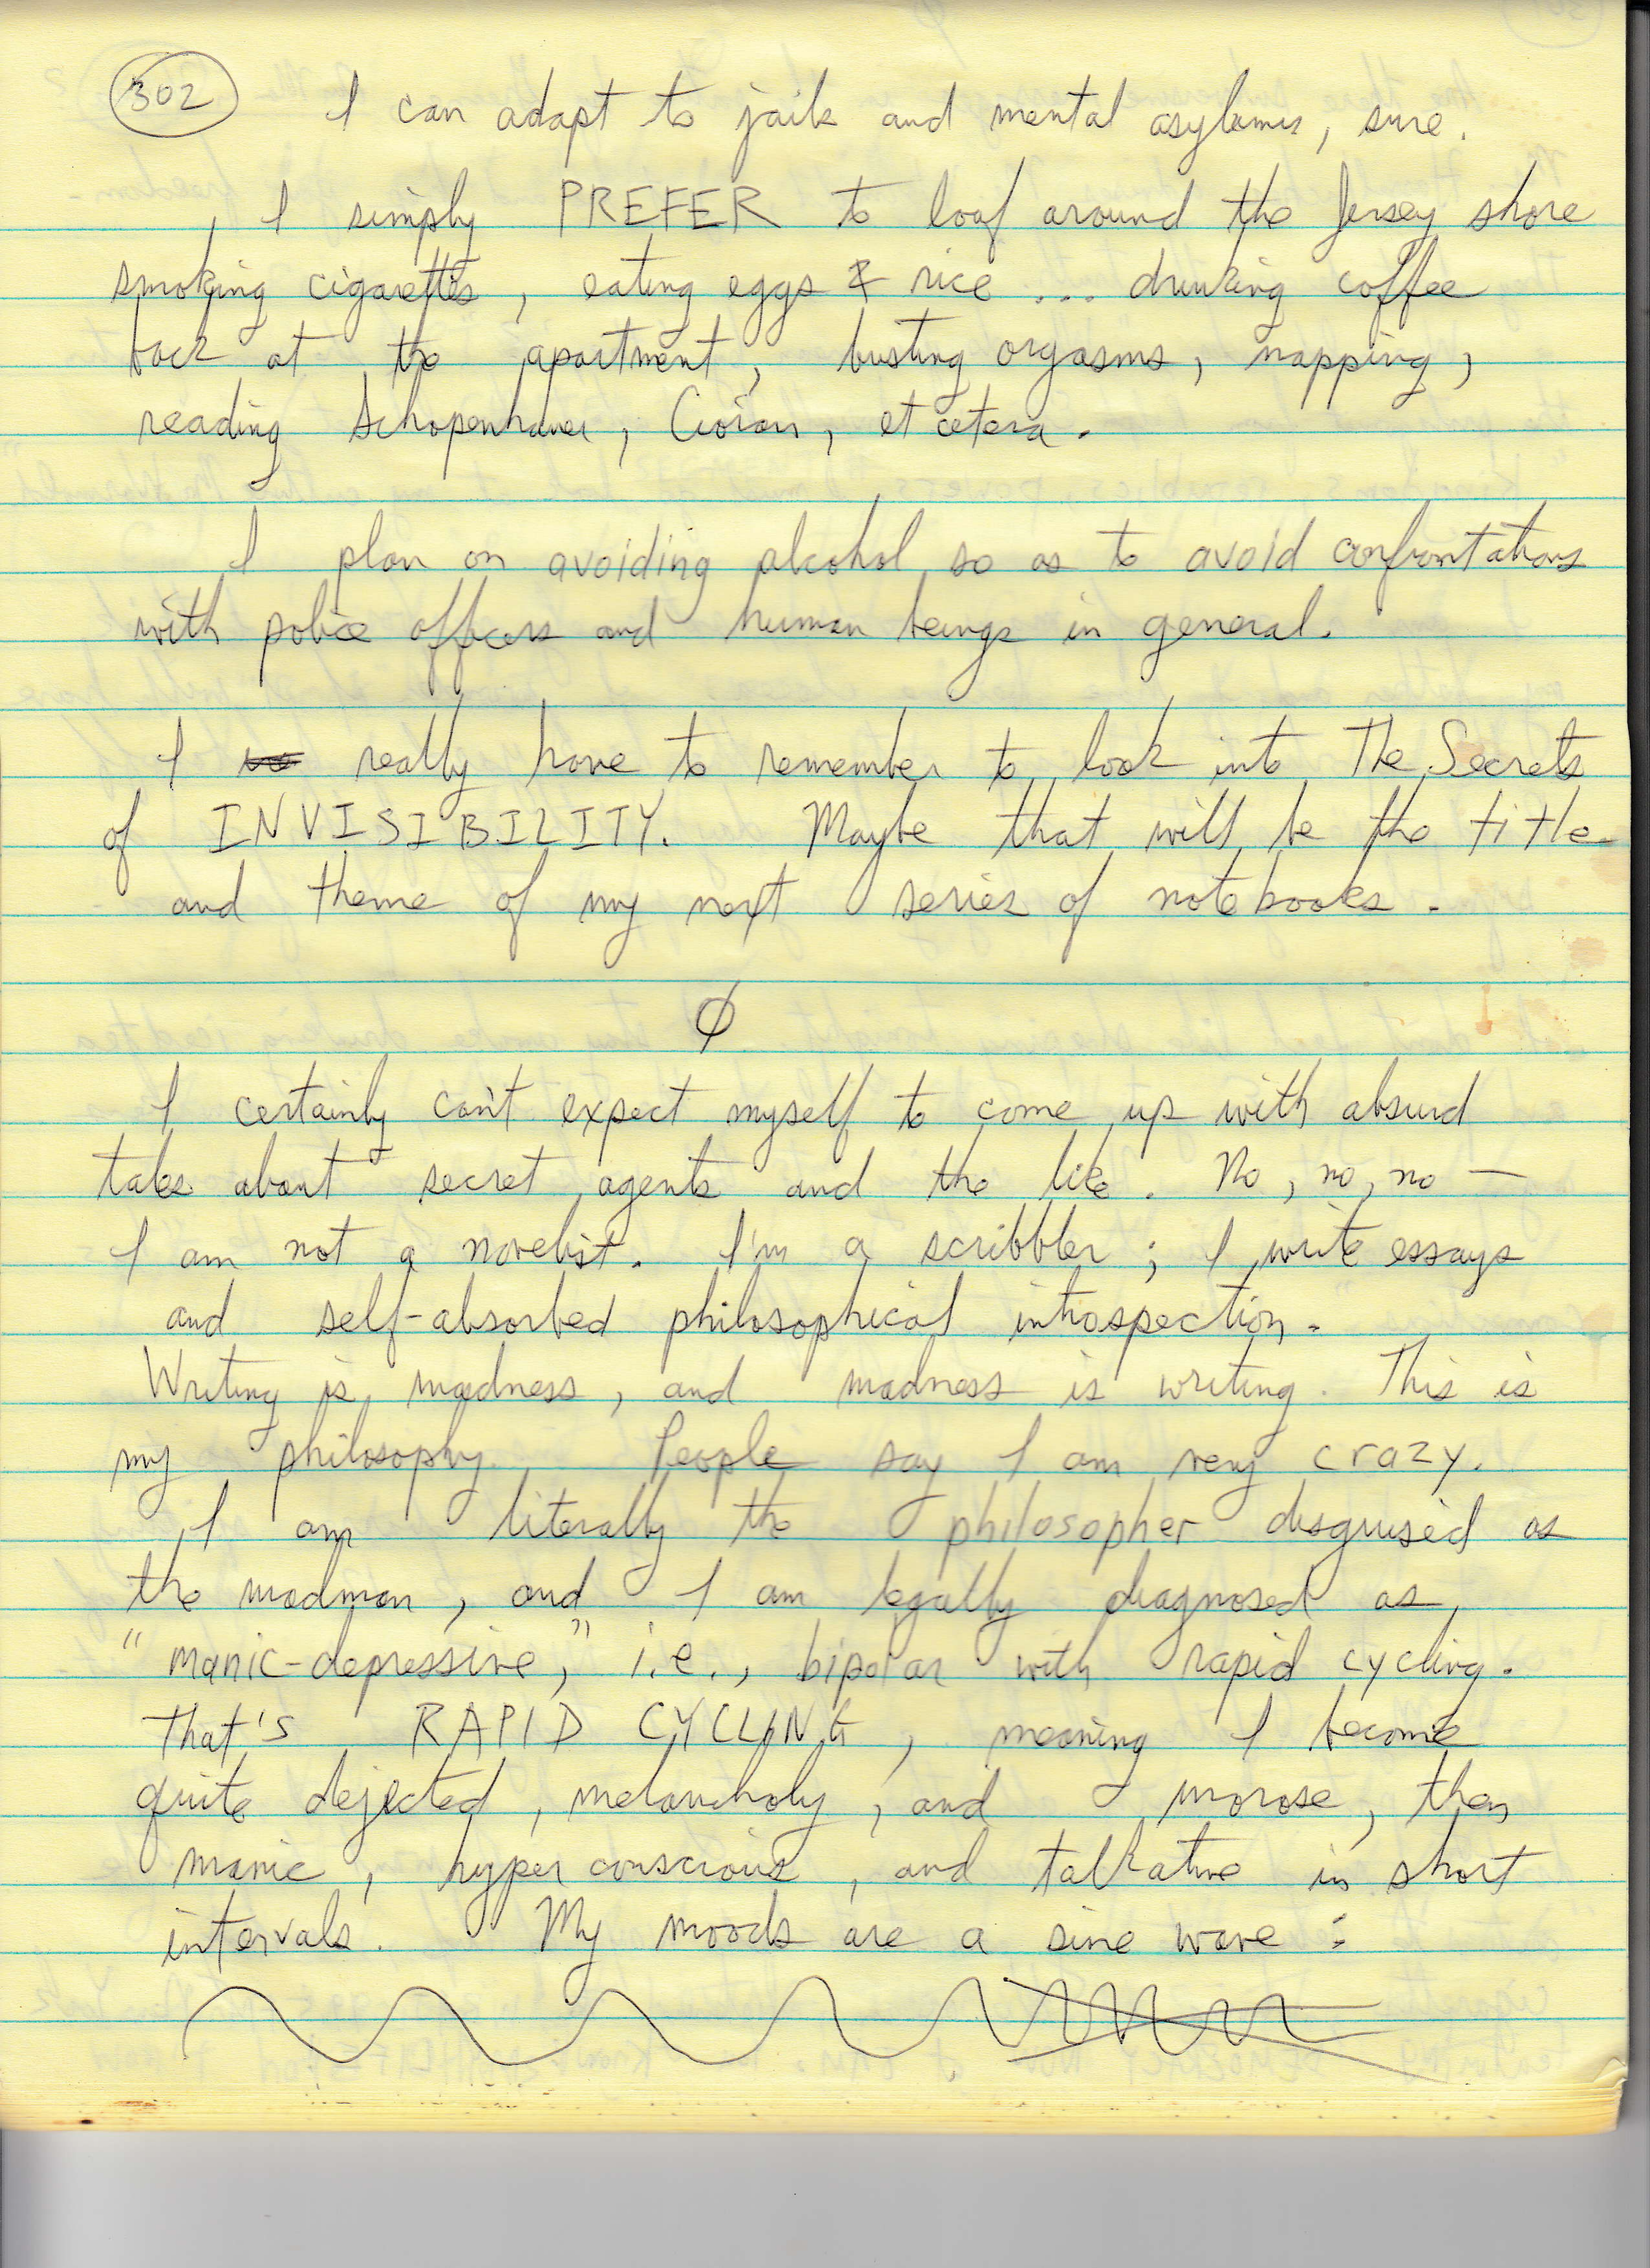 302
I can adapt to jails and mental asylums, sure.
I simply PREFER to loaf around the Jersey shore
smoking cigarettes, eating eggs & rice ... drinking coffee
back at the apartment, busting orgasms, napping,
reading Schopenhauer, Cioran, et cetera.
I plan on avoiding alcohol so as to avoid confrontations
with police officers and human beings in general.
I really have to remember to look into The Secrets
of INVISIBILITY. Maybe that will be the title
and theme of my next series of notebooks.
Ø
I certainly can't expect myself to come up with absurd
tales about secret agents and the like. No, no, no —
I am not a novelist. I'm a scribbler; I write essays
and self-absorbed philosophical introspection.
Writing is madness, and madness is writing. This is
my philosophy. People say I am very crazy.
I am literally the philosopher disguised as
the madman, and I am legally diagnosed as
"manic-depressive," i.e., bipolar with rapid cycling.
That's RAPID CYCLING, meaning I become
quite dejected, melancholy, and morose, then
manic, hyperconscious, and talkative in short
intervals. My moods are a sine wave: